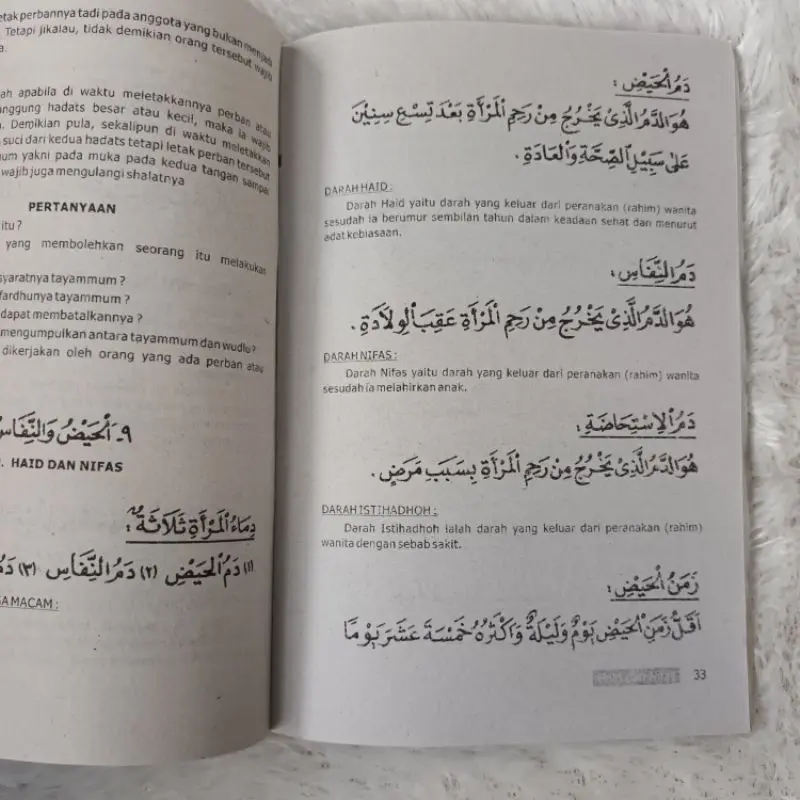 etak perbannya tadi pada anggota yang bukan menjadi
Tetapi jikalau, tidak demikian orang tersebut wajib
a.
ah apabila di waktu meletakkannya perban atau
anggung hadats besar atau kecil, maka ia wajib
. Demikian pula, sekalipun di waktu meletakkan
suci dari kedua hadats tetapi letak perban tersebut
um yakni pada muka pada kedua tangan sampai
wajib juga mengulangi shalatnya
PERTANYAAN
itu ?
yang membolehkan seorang itu melakukan
syaratnya tayammum ?
fardhunya tayammum ?
dapat membatalkannya ?
mengumpulkan antara tayammum dan wudlu ?
dikerjakan oleh orang yang ada perban atau
٩- اَلْحَيْضُ وَالنِّفَاسُ
. HAID DAN NIFAS
دِمَاءُ الْمَرْأَةِ ثَلَاثَةٌ :
(١) دَمُ الْحَيْضِ (٢) دَمُ النِّفَاسِ (٣) دَمُ
GA MACAM :
دَمُ الْحَيْضِ :
هُوَ الدَّمُ الَّذِيْ يَخْرُجُ مِنْ رَحِمِ الْمَرْأَةِ بَعْدَ تِسْعِ سِنِيْنَ
عَلَى سَبِيْلِ الصِّحَّةِ وَالْعَادَةِ .
DARAH HAID :
Darah Haid yaitu darah yang keluar dari peranakan (rahim) wanita
sesudah ia berumur sembilan tahun dalam keadaan sehat dan menurut
adat kebiasaan.
دَمُ النِّفَاسِ :
هُوَ الدَّمُ الَّذِيْ يَخْرُجُ مِنْ رَحِمِ الْمَرْأَةِ عَقِبَ الْوِلَادَةِ .
DARAH NIFAS :
Darah Nifas yaitu darah yang keluar dari peranakan (rahim) wanita
sesudah ia melahirkan anak.
دَمُ الْاِسْتِحَاضَةِ :
هُوَ الدَّمُ الَّذِيْ يَخْرُجُ مِنْ رَحِمِ الْمَرْأَةِ بِسَبَبِ مَرَضٍ .
DARAH ISTIHADHOH :
Darah Istihadhoh ialah darah yang keluar dari peranakan (rahim)
wanita dengan sebab sakit.
زَمَنُ الْحَيْضِ :
اَقَلُّ زَمَنِ الْحَيْضِ يَوْمٌ وَلَيْلَةٌ وَاَكْثَرُهُ خَمْسَةَ عَشَرَ يَوْمًا
33